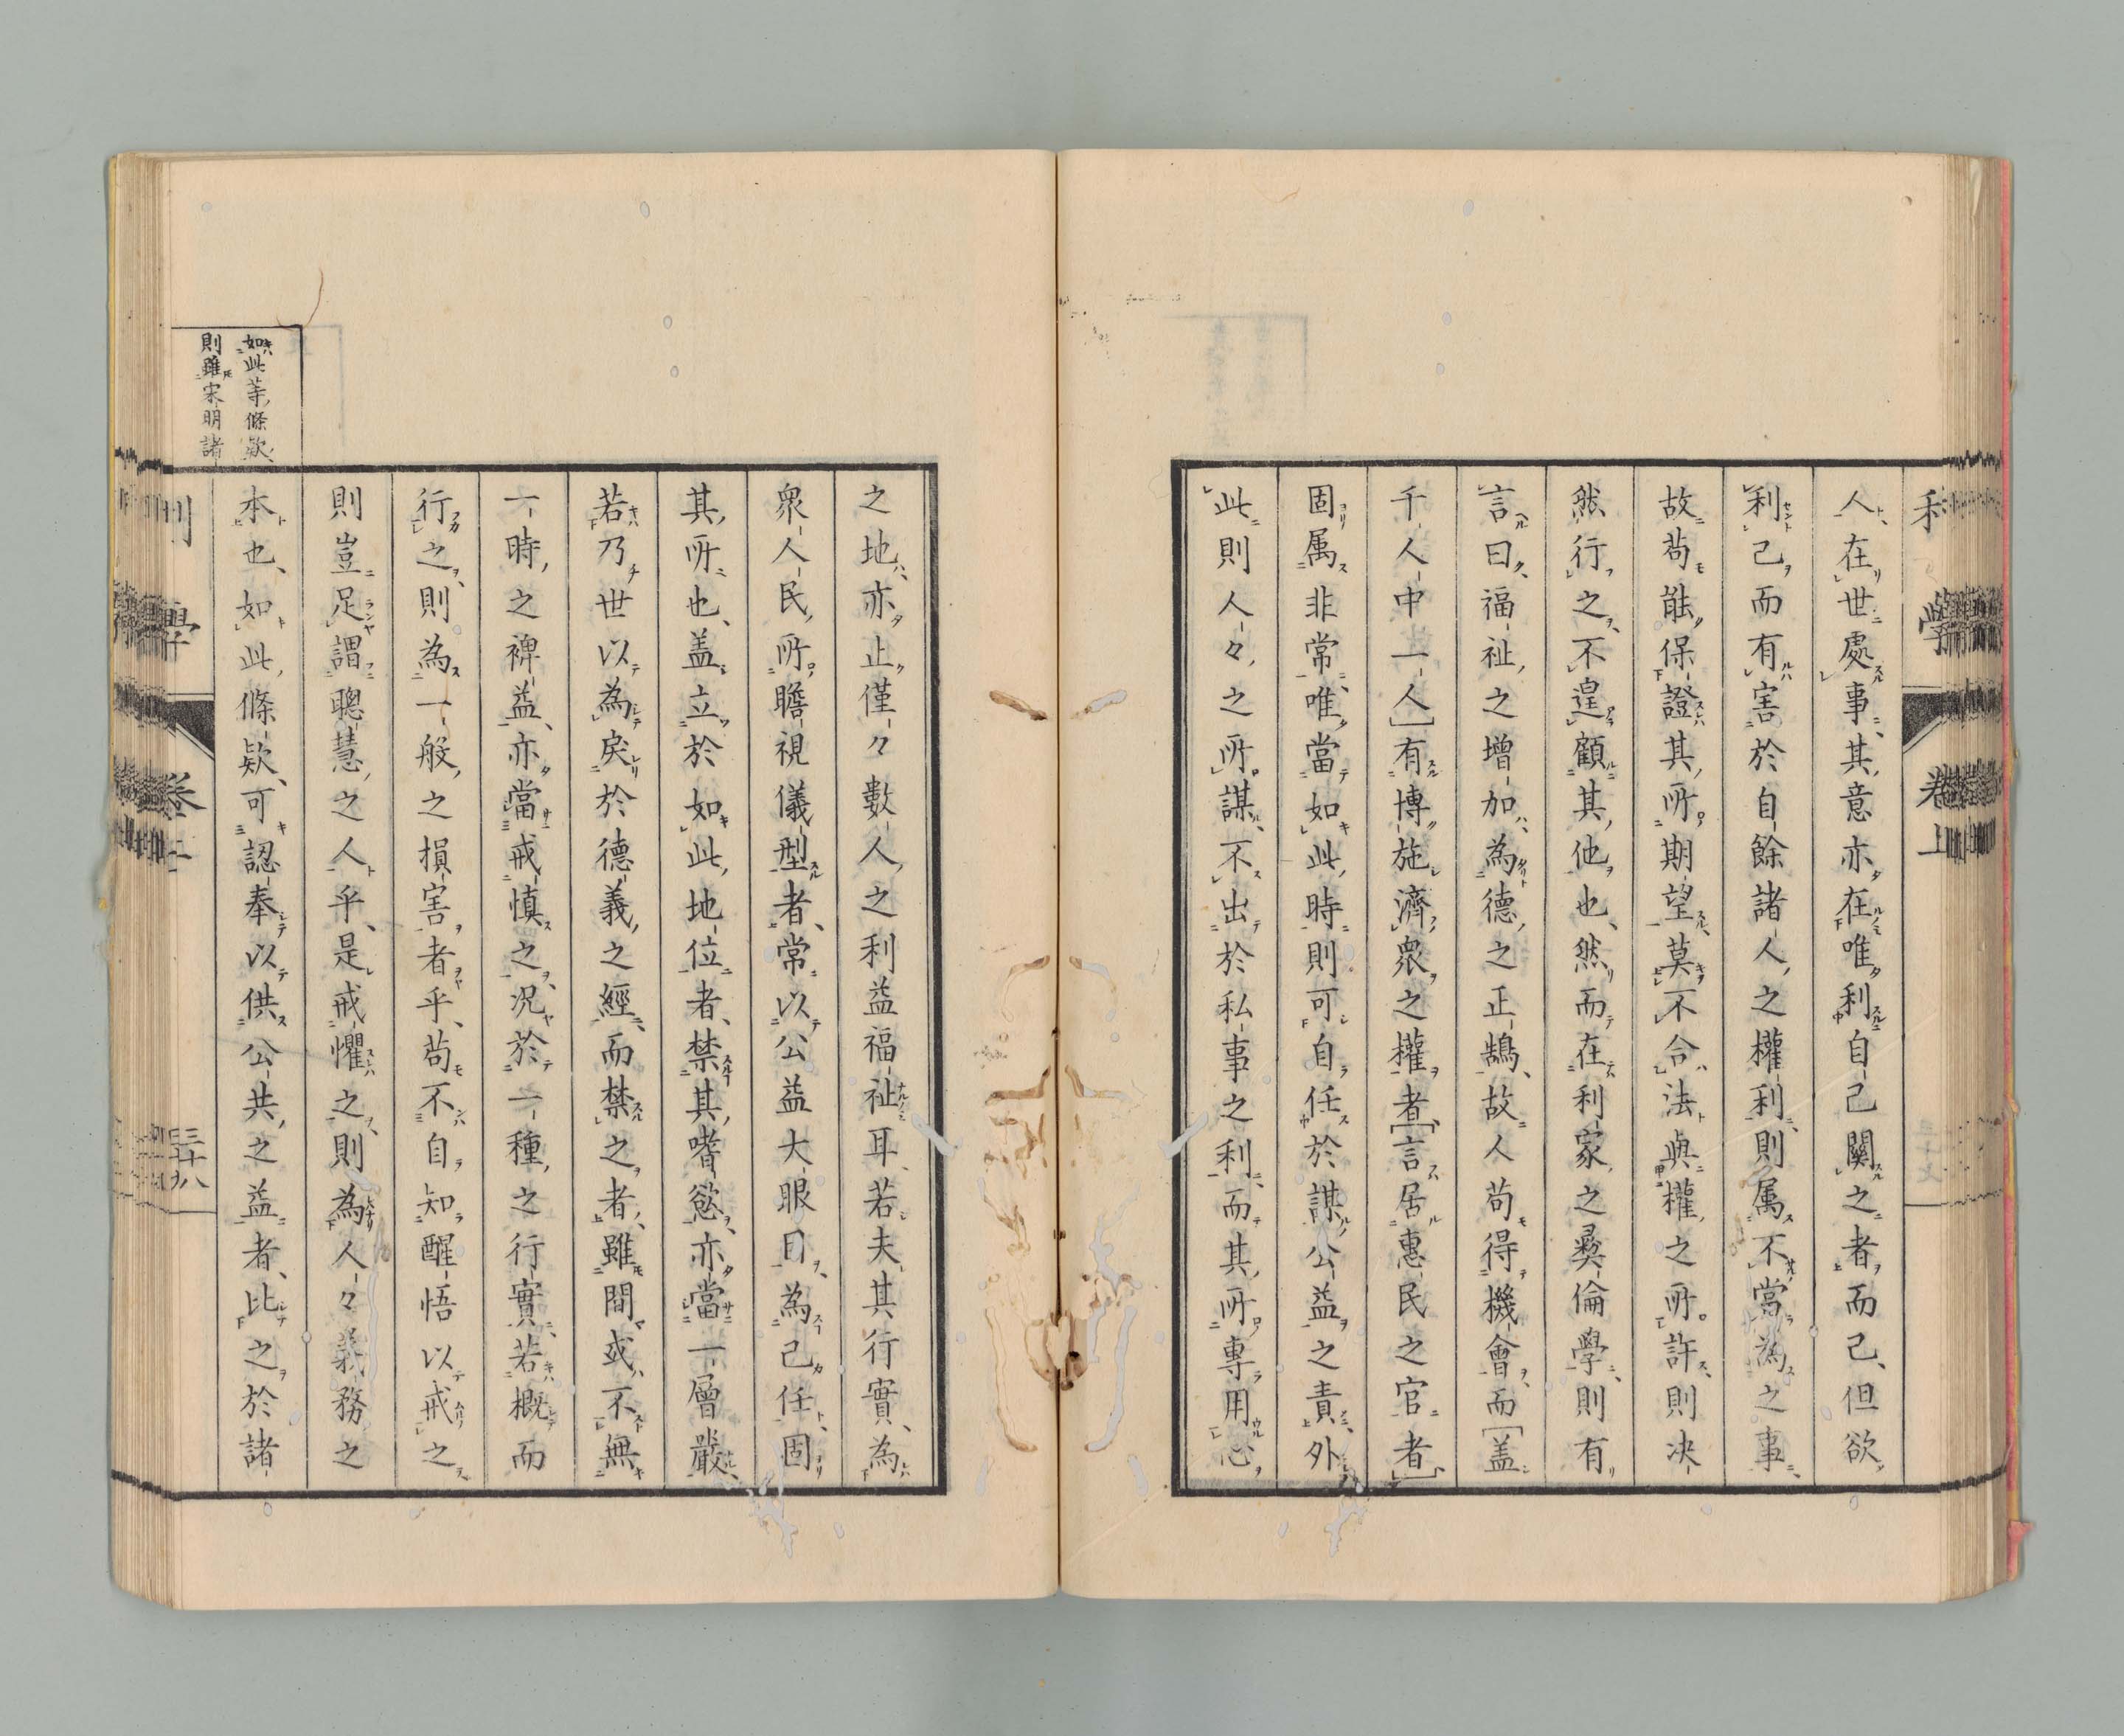 人在世處事其意亦在唯利自己關之者而已、但欲
利己而有害於自餘諸人之權利、則属不當為之事、
故苟能保證其所期望、莫不合法與權之所許、則决
然行之、不遑顧其他也、然而在利家之彝倫學、則有
言曰、福祉之增加、為德之正鵠、故人苟得機會、而[盖
千人中一人]有博施濟衆之權者[言居惠民之官者]
固属非常、唯當如此時、則可自任於謀公益之責、外
此則人々之所謀、不出於私事之利、而其所專用心
之地、亦止僅々數人之利益福祉耳、若夫其行實、為
衆人民所瞻視儀型者、常以公益大眼目、為己任、固
其所也、盖立於如此地位者、禁其嗜慾、亦當一層嚴
若乃世以為戾於德義之經、而禁之者、雖間或不無
一時之裨益、亦當戒慎之、况於一種之行實、若概而
行之、則為一般之損害者乎、苟不自知醒悟以戒之
則豈足謂聰慧之人乎、是戒懼之、則為人々義務之
本也、如此條欵、可認奉以供公共之益者、比之於諸
如此等條欵、
則雖宋明諸
利學 卷上
三十八